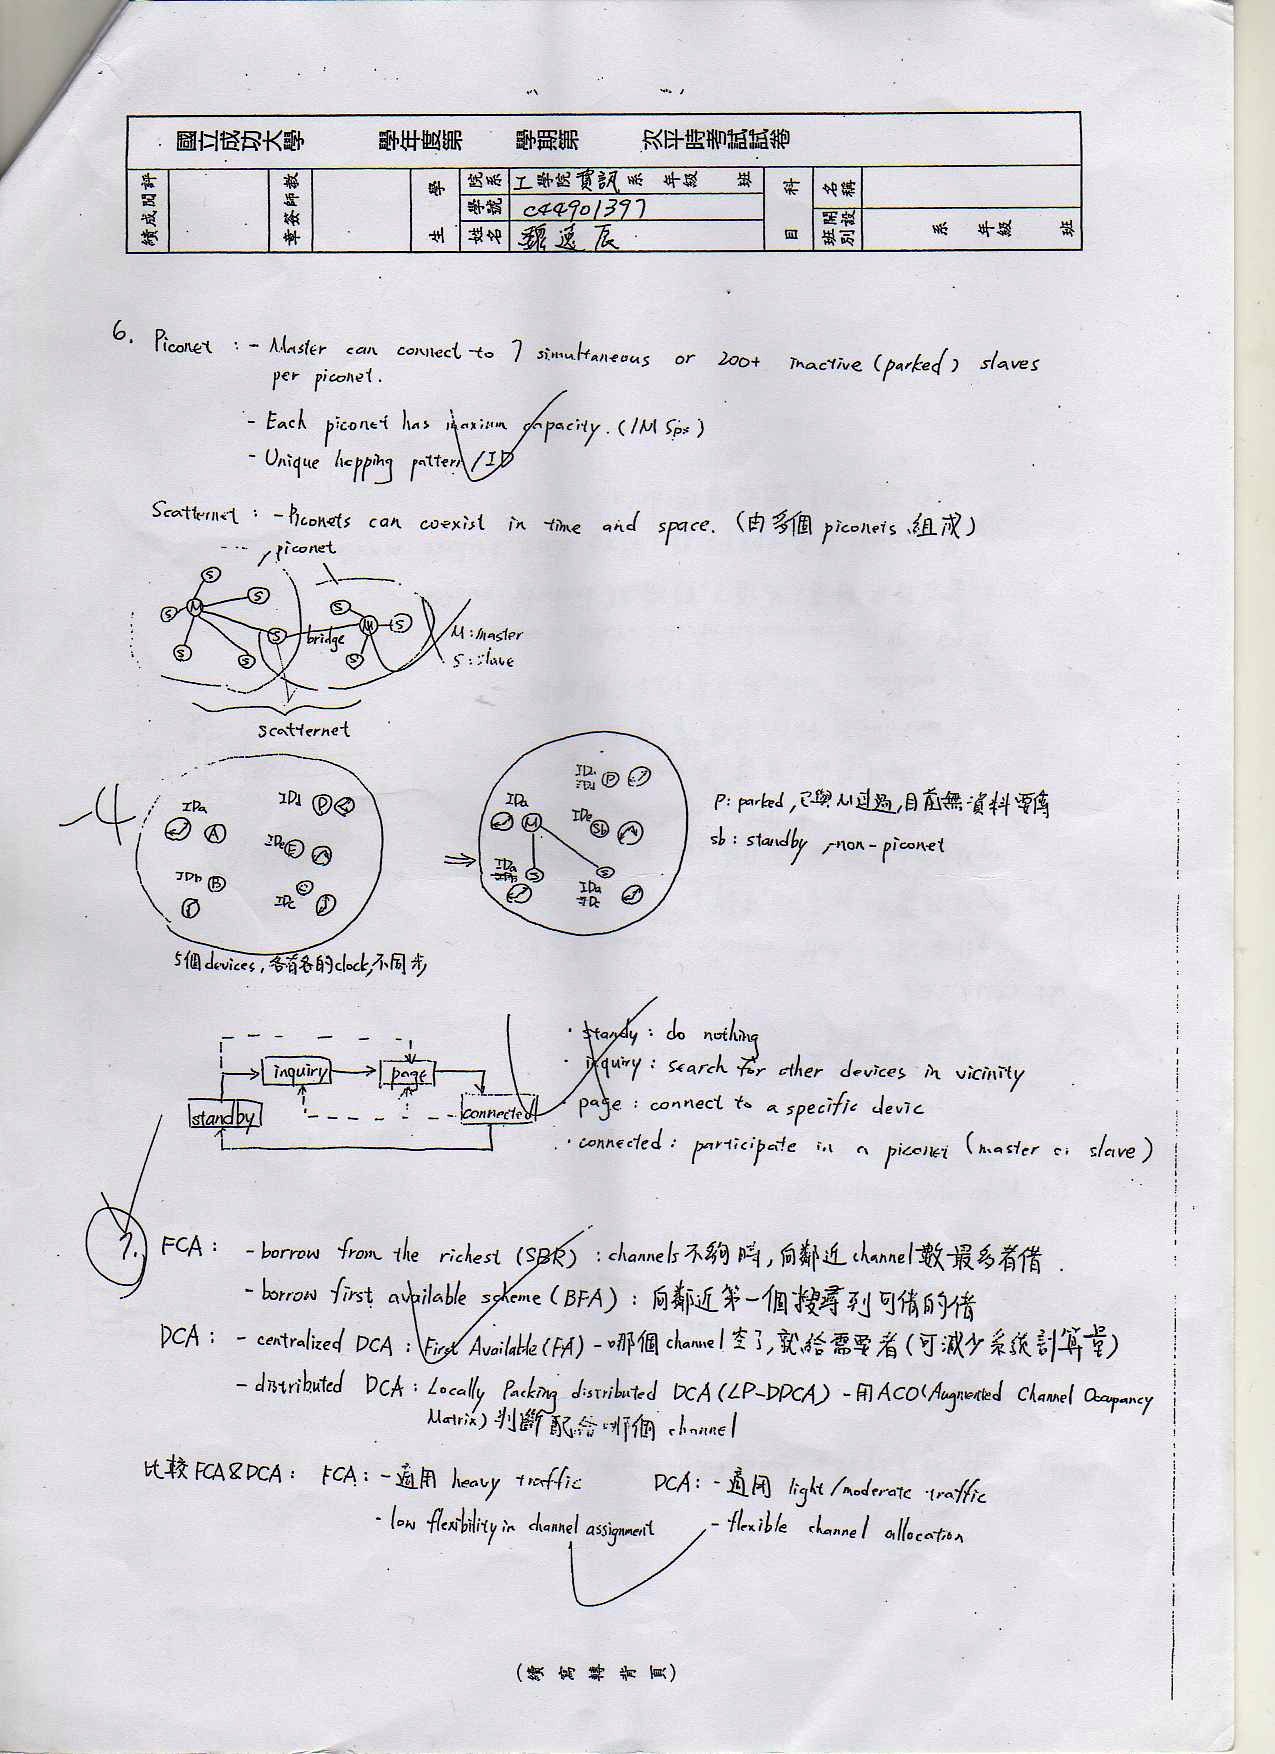 國立成功大學 學年度第 學期第 次平時考試試卷
績成閱評
章簽師教
學生
院系 工學院資訊系 年級 班
學號 c44901397
姓名 魏 辰
科目
名稱
班別 開設 系 年級 班
6. Piconet : - Master can connect to 7 simultaneous or 200+ inactive (parked) slaves
per piconet.
- Each piconet has maxium capacity. (1M Sps)
- Unique hopping pattern/ID
Scatternet : - Piconets can coexist in time and space. (由多個 piconets 組成)
piconet
S
S
S
M
S
S
S
bridge
S
M
S
S
M : master
S : slave
scatternet
-4
IDa
A
IDd
P
IDe
E
IDb
B
IDc
C
5個devices, 各有各的clock,不同步
⇒
IDa
M
IDd
P
IDe
Sb
IDa
IDb
S
IDa
IDc
S
P: parked, 已與M 過, 目前無資料要傳
sb : standby , non-piconet
inquiry
page
standby
connected
· standy : do nothing
· inquiry : search for other devices in vicinity
· page : connect to a specific devic
· connected : participate in a piconet (master or slave)
7. FCA : - borrow from the richest (SBR) : channels 不夠時, 向鄰近 channel 數最多者借.
- borrow first available scheme (BFA) : 向鄰近第一個搜尋到可借的借
DCA : - centralized DCA : First Available (FA) - 哪個 channel 空了, 就給需要者 (可減少系統計算量)
- distributed DCA : Locally Packing distributed DCA (LP-DDCA) - 用 ACO (Augmented Channel Occupancy
Matrix) 判斷配給哪個 channel
比較 FCA & DCA : FCA : - 適用 heavy traffic DCA : - 適用 light/moderate traffic
- low flexibility in channel assignment - flexible channel allocation
(續寫轉背頁)